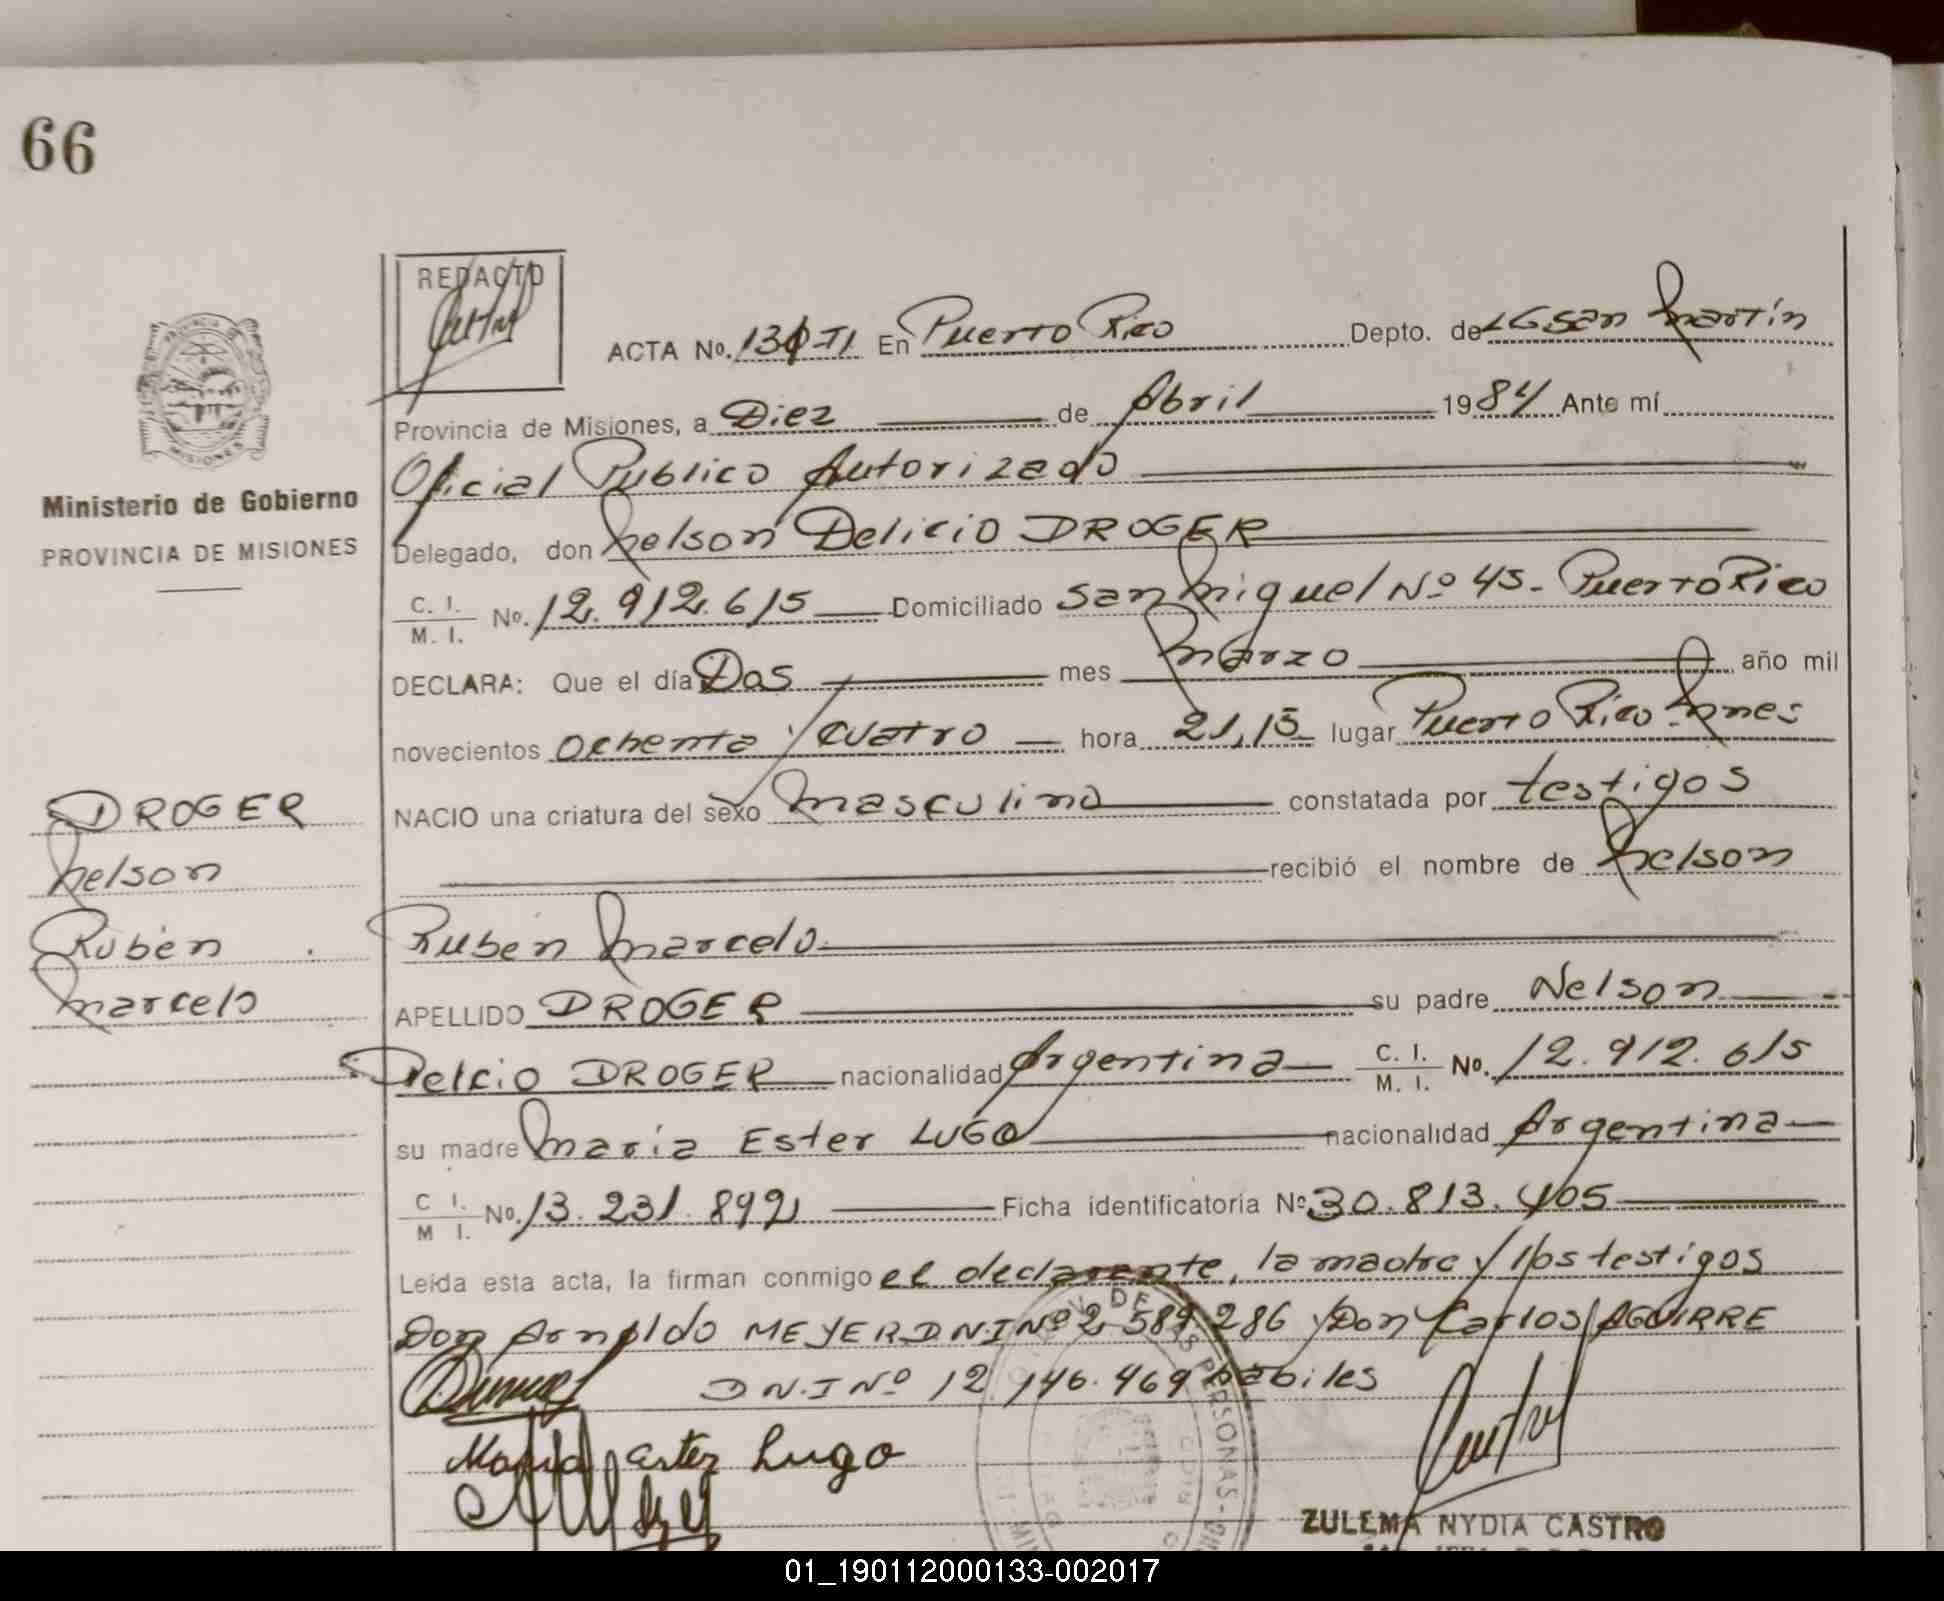 66
REDACTO
ACTA No. 131-TI En Puerto Rico Depto. de LG San Martín
Provincia de Misiones, a Diez de Abril 1984 Ante mí
Oficial Publico Autorizado
Ministerio de Gobierno
PROVINCIA DE MISIONES
Delegado, don Nelson Delicio DROGER
C. I. / M. I. No. 12.912.615 Domiciliado San Miguel Nº 45- Puerto Rico
DECLARA: Que el día Dos mes Marzo año mil
novecientos Ochenta y cuatro hora 21,15 lugar Puerto Rico Mnes
NACIO una criatura del sexo Masculino constatada por testigos
recibió el nombre de Nelson
Ruben Marcelo
APELLIDO DROGER su padre Nelson
Delcio DROGER nacionalidad Argentina C. I. / M. I. No. 12.912.615
su madre Maria Ester LUGO nacionalidad Argentina
C I. / M I. No. 13.231.892 Ficha identificatoria Nº 30.813.405
Leída esta acta, la firman conmigo el declarente, la madre y los testigos
Don Arnoldo MEYER D.N.I Nº 2 589 286 y Don Carlos AGUIRRE
D.N.I Nº 12.146.469 habiles
Maria Ester Lugo
ZULEMA NYDIA CASTRO
DROGER
Nelson
Rubén
Marcelo
01_190112000133-002017